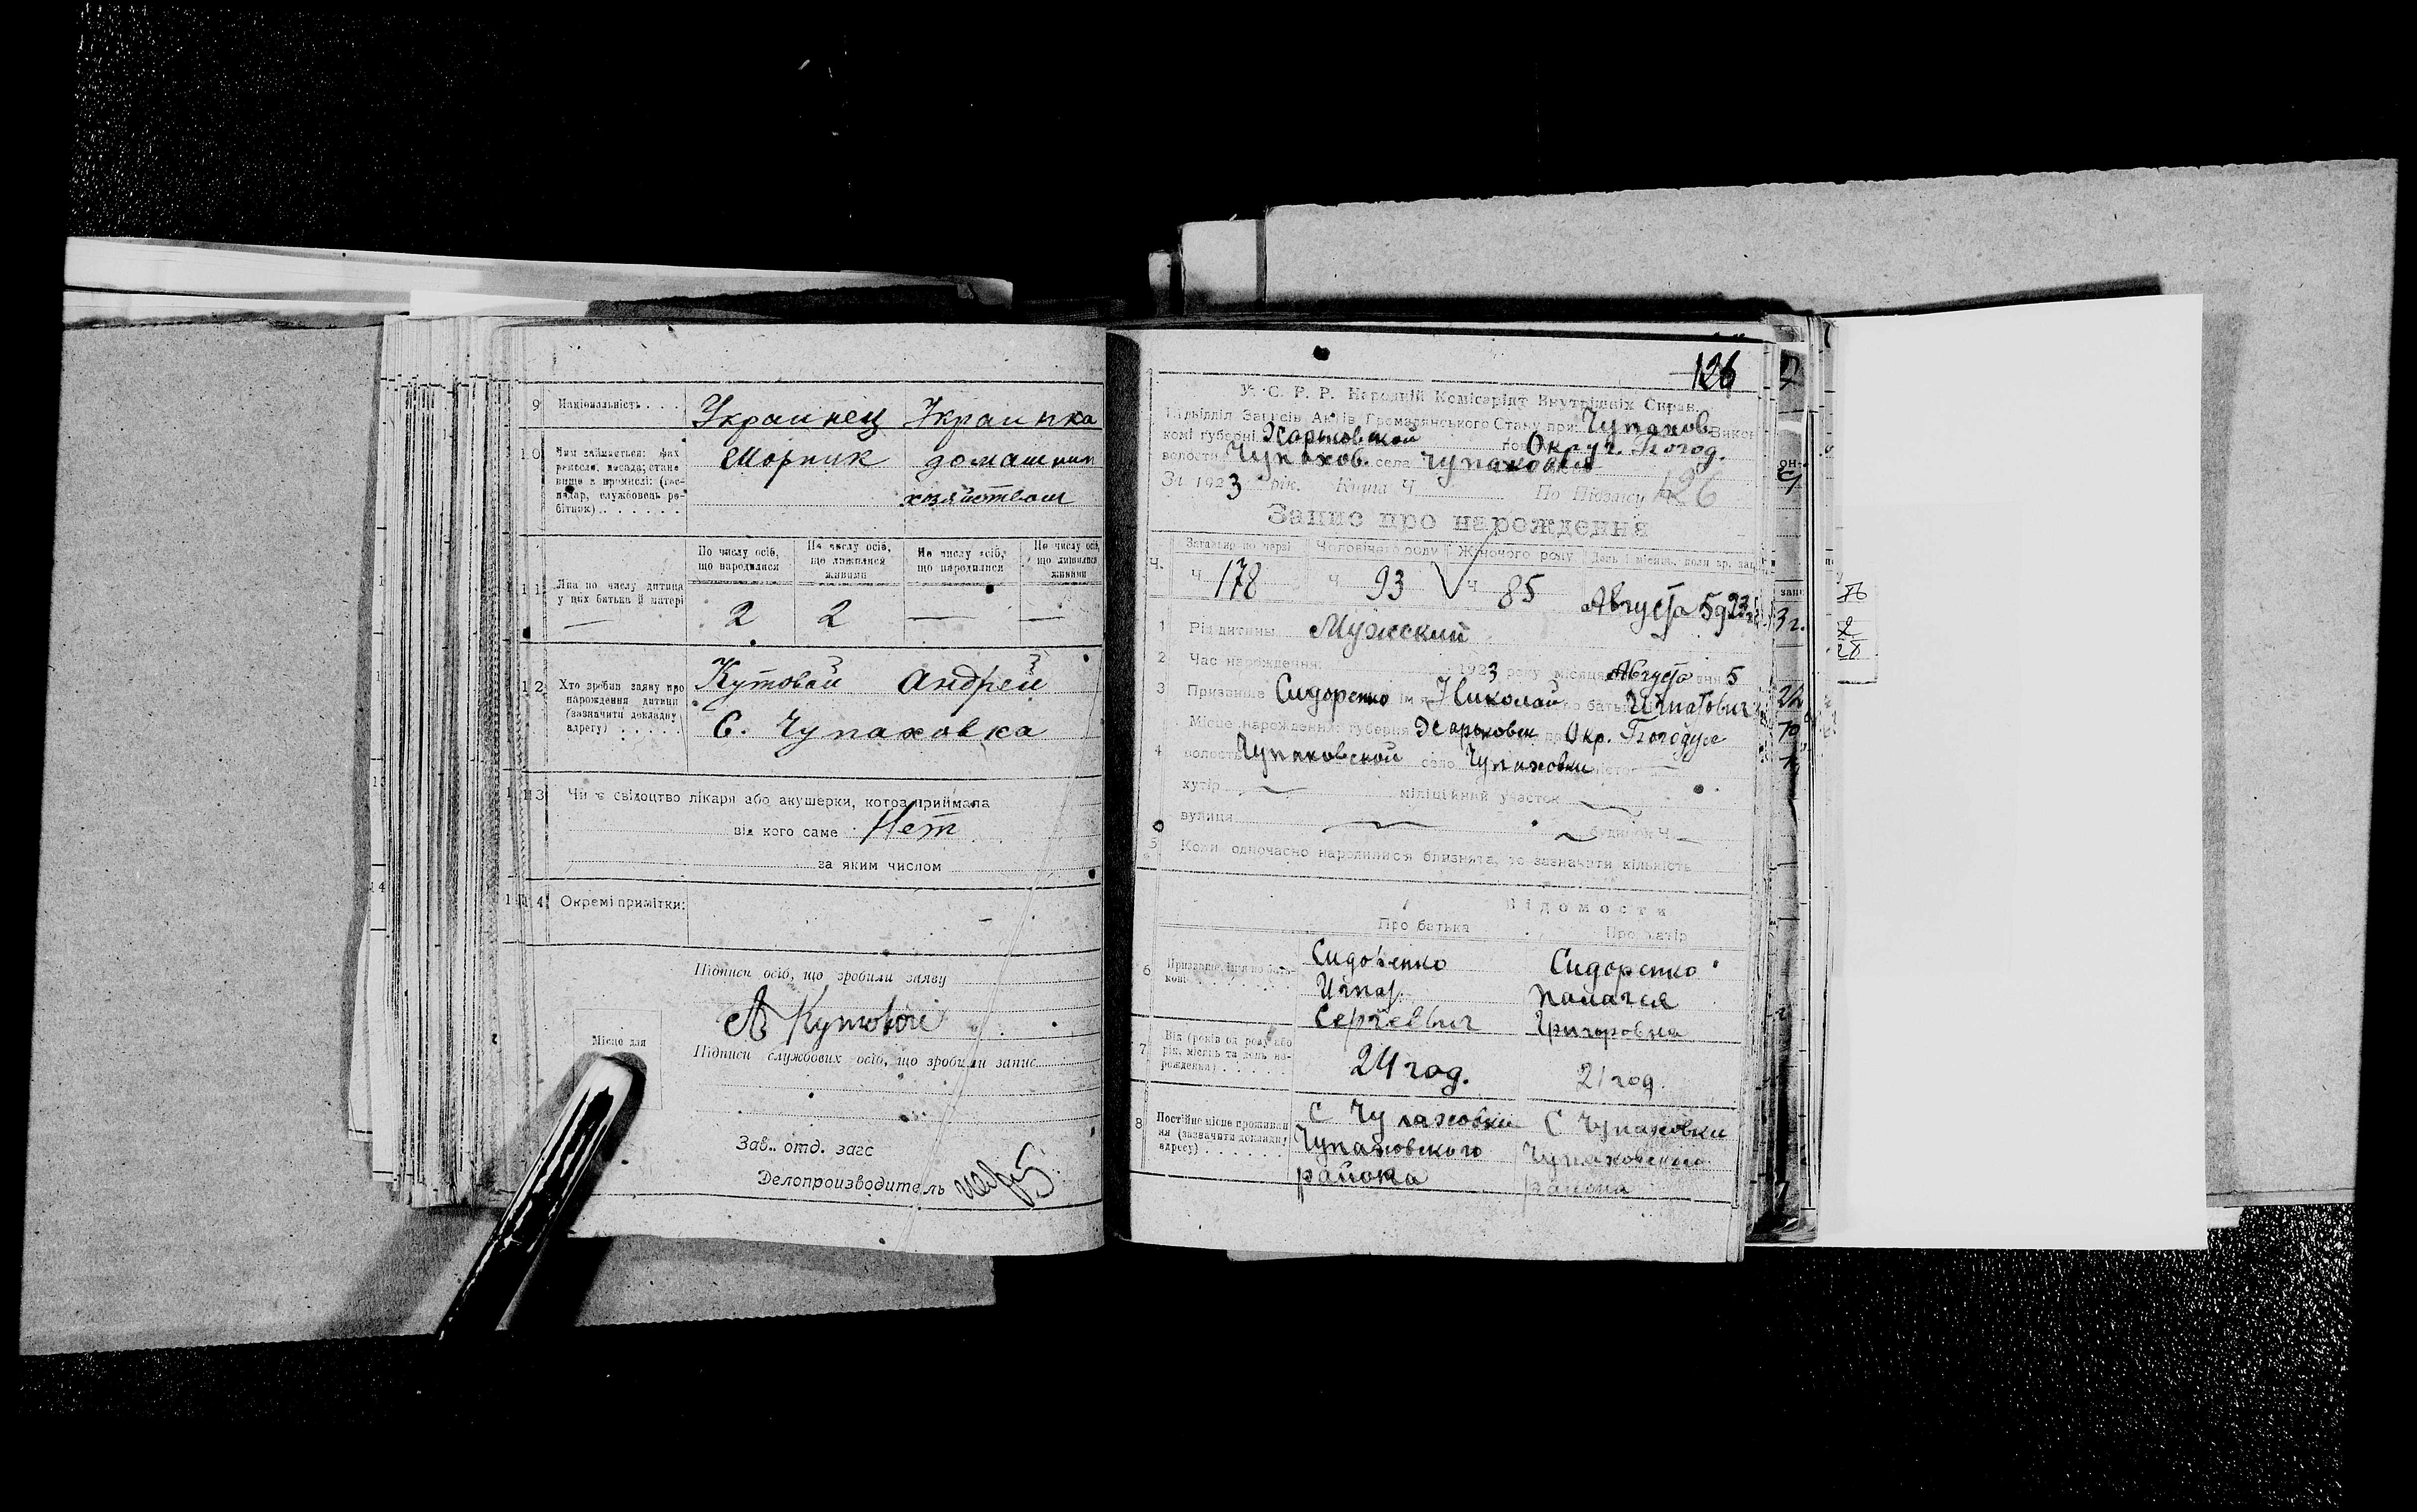 9 Національність . . . . Украинец Украинка
10 Чим займається: фах
ремесло, посада; стано-
вище в промислі: (гос-
подар, службовець ро-
бітник) . . . . . . .
Шорник домашнин
хозяйством
По числу осіб, що народилися По числу осіб, що лишилися живими По числу осіб, що народилися По числу осіб, що лишилися живими
11 Яка по числу дитина
у цих батька й матері
2 2 — —
12 Хто зробив заяву про
нарождення дитини
(зазначити докладну
адресу) . . . . . .
Кутовай Андрей
С. Чупаховка
13 Чи є свідоцтво лікаря або акушерки, котра приймала
від кого саме Нет
за яким числом
14 Окремі примітки:
Підписи осіб, що зробили заяву
А Кутовой
Місце для
Підписи службових осіб, що зробили запис
Зав. отд. загс
Делопроизводитель
126
У. С. Р. Р. Народній Комісаріят Внутрішніх Справ.
Підвідділ Записів Актів Громадянського Стану при Чупахов Викон
комі губерні Харьковской пов. Округ. Богод.
волости Чупахов. села Чупаховки
За 1923 рік. Книга Ч По Підпису 126
Запис про нарождення
Загально по черзі Чоловічого роду Жіночого роду День і місяць, коли зр. зап.
Ч. Ч 178 Ч 93 Ч 85 Августа 5
1 Рід дитини Мужский
2 Час нарождення: 1923 року місяця Августа дня 5
3 Призвище Сидоренко ім'я Николай по батькові Игнатович
4 Місце нарождення: губерня Харьковск Окр. Богодух
волость Чупаховской село Чупаховки місто —
хутір міліційний участок
вулиця будинок Ч —
5 Коли одночасно народилися близнята, то зазначити кількість
Відомости
Про батька Про матір
6 Призвище, ім'я по бать-
кові . . . . . . .
Сидоренко Сидоренко
Игнат. Палагея
Сергеевич Григоровна
7 Вік (років од роду або
рік, місяць та день на-
рождення) . . . . . .
24 год. 21 год.
8 Постійне місце проживан
ня (зазначити докладну
адресу) . . . . . . .
С Чупаховки С Чупаховки
Чупаховского Чупаховского
района района